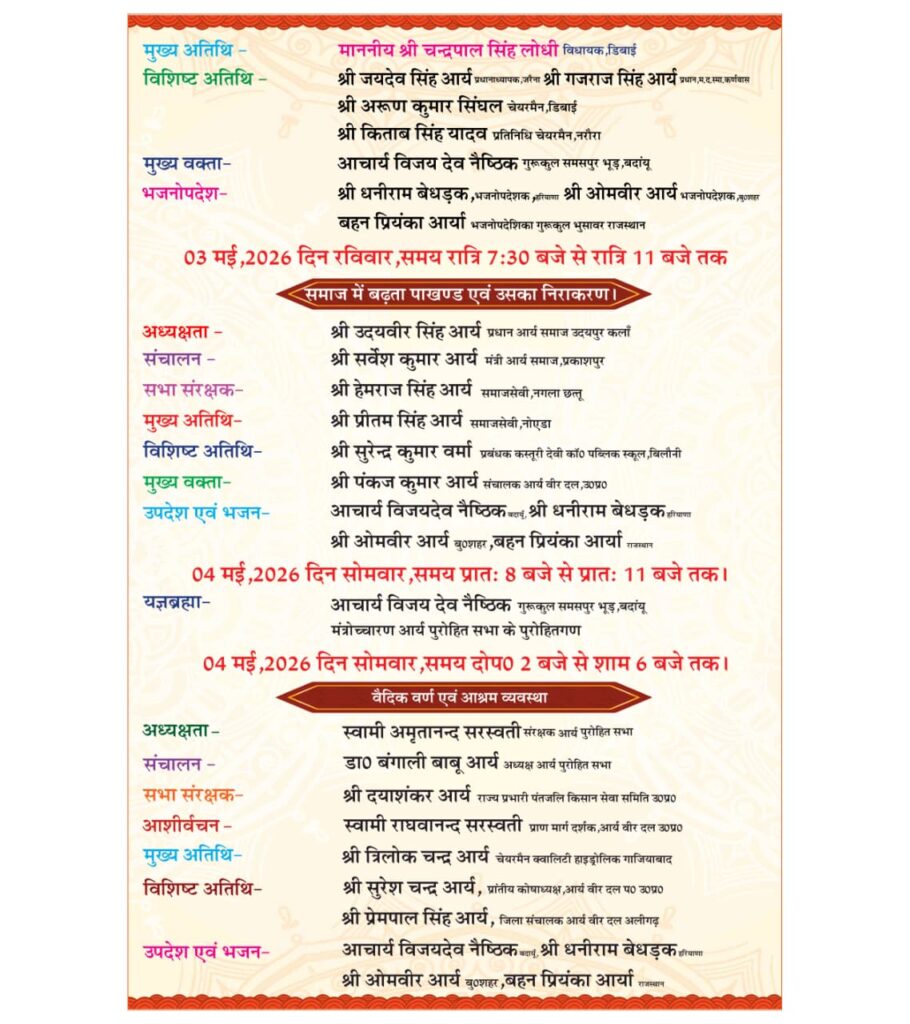 मुख्य अतिथि - माननीय श्री चन्द्रपाल सिंह लोधी विधायक,डिबाई
विशिष्ट अतिथि - श्री जयदेव सिंह आर्य प्रधानाध्यापक,जरैना श्री गजराज सिंह आर्य प्रधान,म.द.स्मा.कर्णवास
श्री अरूण कुमार सिंघल चेयरमैन,डिबाई
श्री किताब सिंह यादव प्रतिनिधि चेयरमैन,नरौरा
मुख्य वक्ता- आचार्य विजय देव नैष्ठिक गुरूकुल समसपुर भूड़,बदांयू
भजनोपदेश- श्री धनीराम बेधड़क,भजनोपदेशक,हरियाणा श्री ओमवीर आर्य भजनोपदेशक,बु0शहर
बहन प्रियंका आर्या भजनोपदेशिका गुरूकुल भुसावर राजस्थान
03 मई,2026 दिन रविवार,समय रात्रि 7:30 बजे से रात्रि 11 बजे तक
समाज में बढ़ता पाखण्ड एवं उसका निराकरण।
अध्यक्षता - श्री उदयवीर सिंह आर्य प्रधान आर्य समाज उदयपुर कलाँ
संचालन - श्री सर्वेश कुमार आर्य मंत्री आर्य समाज,प्रकाशपुर
सभा संरक्षक- श्री हेमराज सिंह आर्य समाजसेवी,नगला छत्तू
मुख्य अतिथि- श्री प्रीतम सिंह आर्य समाजसेवी,नोएडा
विशिष्ट अतिथि- श्री सुरेन्द्र कुमार वर्मा प्रबंधक कस्तूरी देवी कॉ0 पब्लिक स्कूल,बिलौनी
मुख्य वक्ता- श्री पंकज कुमार आर्य संचालक आर्य वीर दल,उ0प्र0
उपदेश एवं भजन- आचार्य विजयदेव नैष्ठिक बदायूं, श्री धनीराम बेधड़क हरियाणा
श्री ओमवीर आर्य बु0शहर,बहन प्रियंका आर्या राजस्थान
04 मई,2026 दिन सोमवार,समय प्रातः 8 बजे से प्रातः 11 बजे तक।
यज्ञब्रह्मा- आचार्य विजय देव नैष्ठिक गुरूकुल समसपुर भूड़,बदांयू
मंत्रोच्चारण आर्य पुरोहित सभा के पुरोहितगण
04 मई,2026 दिन सोमवार,समय दोप0 2 बजे से शाम 6 बजे तक।
वैदिक वर्ण एवं आश्रम व्यवस्था
अध्यक्षता - स्वामी अमृतानन्द सरस्वती संरक्षक आर्य पुरोहित सभा
संचालन - डा0 बंगाली बाबू आर्य अध्यक्ष आर्य पुरोहित सभा
सभा संरक्षक- श्री दयाशंकर आर्य राज्य प्रभारी पंतजलि किसान सेवा समिति उ0प्र0
आशीर्वचन - स्वामी राघवानन्द सरस्वती प्राण मार्ग दर्शक,आर्य वीर दल उ0प्र0
मुख्य अतिथि- श्री त्रिलोक चन्द्र आर्य चेयरमैन क्वालिटी हाइड्रोलिक गाजियाबाद
विशिष्ट अतिथि- श्री सुरेश चन्द्र आर्य, प्रांतीय कोषाध्यक्ष,आर्य वीर दल प0 उ0प्र0
श्री प्रेमपाल सिंह आर्य, जिला संचालक आर्य वीर दल अलीगढ़
उपदेश एवं भजन- आचार्य विजयदेव नैष्ठिक बदायूं, श्री धनीराम बेधड़क हरियाणा
श्री ओमवीर आर्य बु0शहर,बहन प्रियंका आर्या राजस्थान